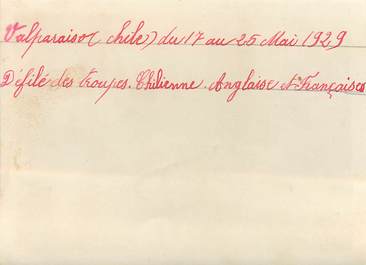 Valparaiso (chile) du 17 au 25 Mai 1929
Défilé des troupes. Chilienne. Anglaise et Françaises